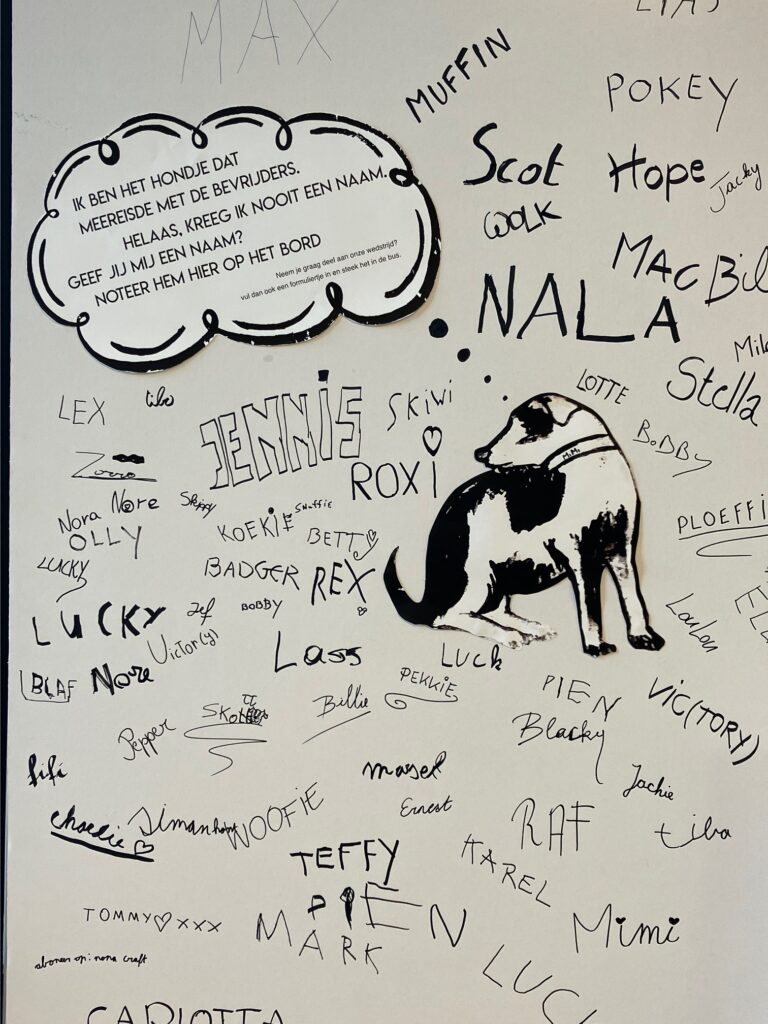 MAX
MUFFIN
POKEY
IK BEN HET HONDJE DAT
MEEREISDE MET DE BEVRIJDERS.
HELAAS, KREEG IK NOOIT EEN NAAM.
GEEF JIJ MIJ EEN NAAM?
NOTEER HEM HIER OP HET BORD
Neem je graag deel aan onze wedstrijd?
vul dan ook een formuliertje in en steek het in de bus.
Scot
Hope
Jacky
WOLK
MAC
Bil
NALA
Mila
Stella
LOTTE
LEX
tibo
JENNIS
SKIWI
BOBBY
Zorro
ROXI
MiMi
Nora
Nore
Skippy
Snuffie
KOEKIE
PLOEFFI
OLLY
BETTY
LUCKY
BADGER
REX
LUCKY
Jef
BOBBY
LouLou
Victor(y)
Lass
Luck
BLAF
Nore
PEKKIE
PIEN
VIC(TORY)
Billie
Pepper
Blacky
fifi
masel
Jackie
Ernest
charlie
WOOFIE
RAF
tiba
TEFFY
KAREL
PIEN
TOMMY♡xxx
MARK
Mimi
abonneer op: nona craft
LUC
CARLOTTA